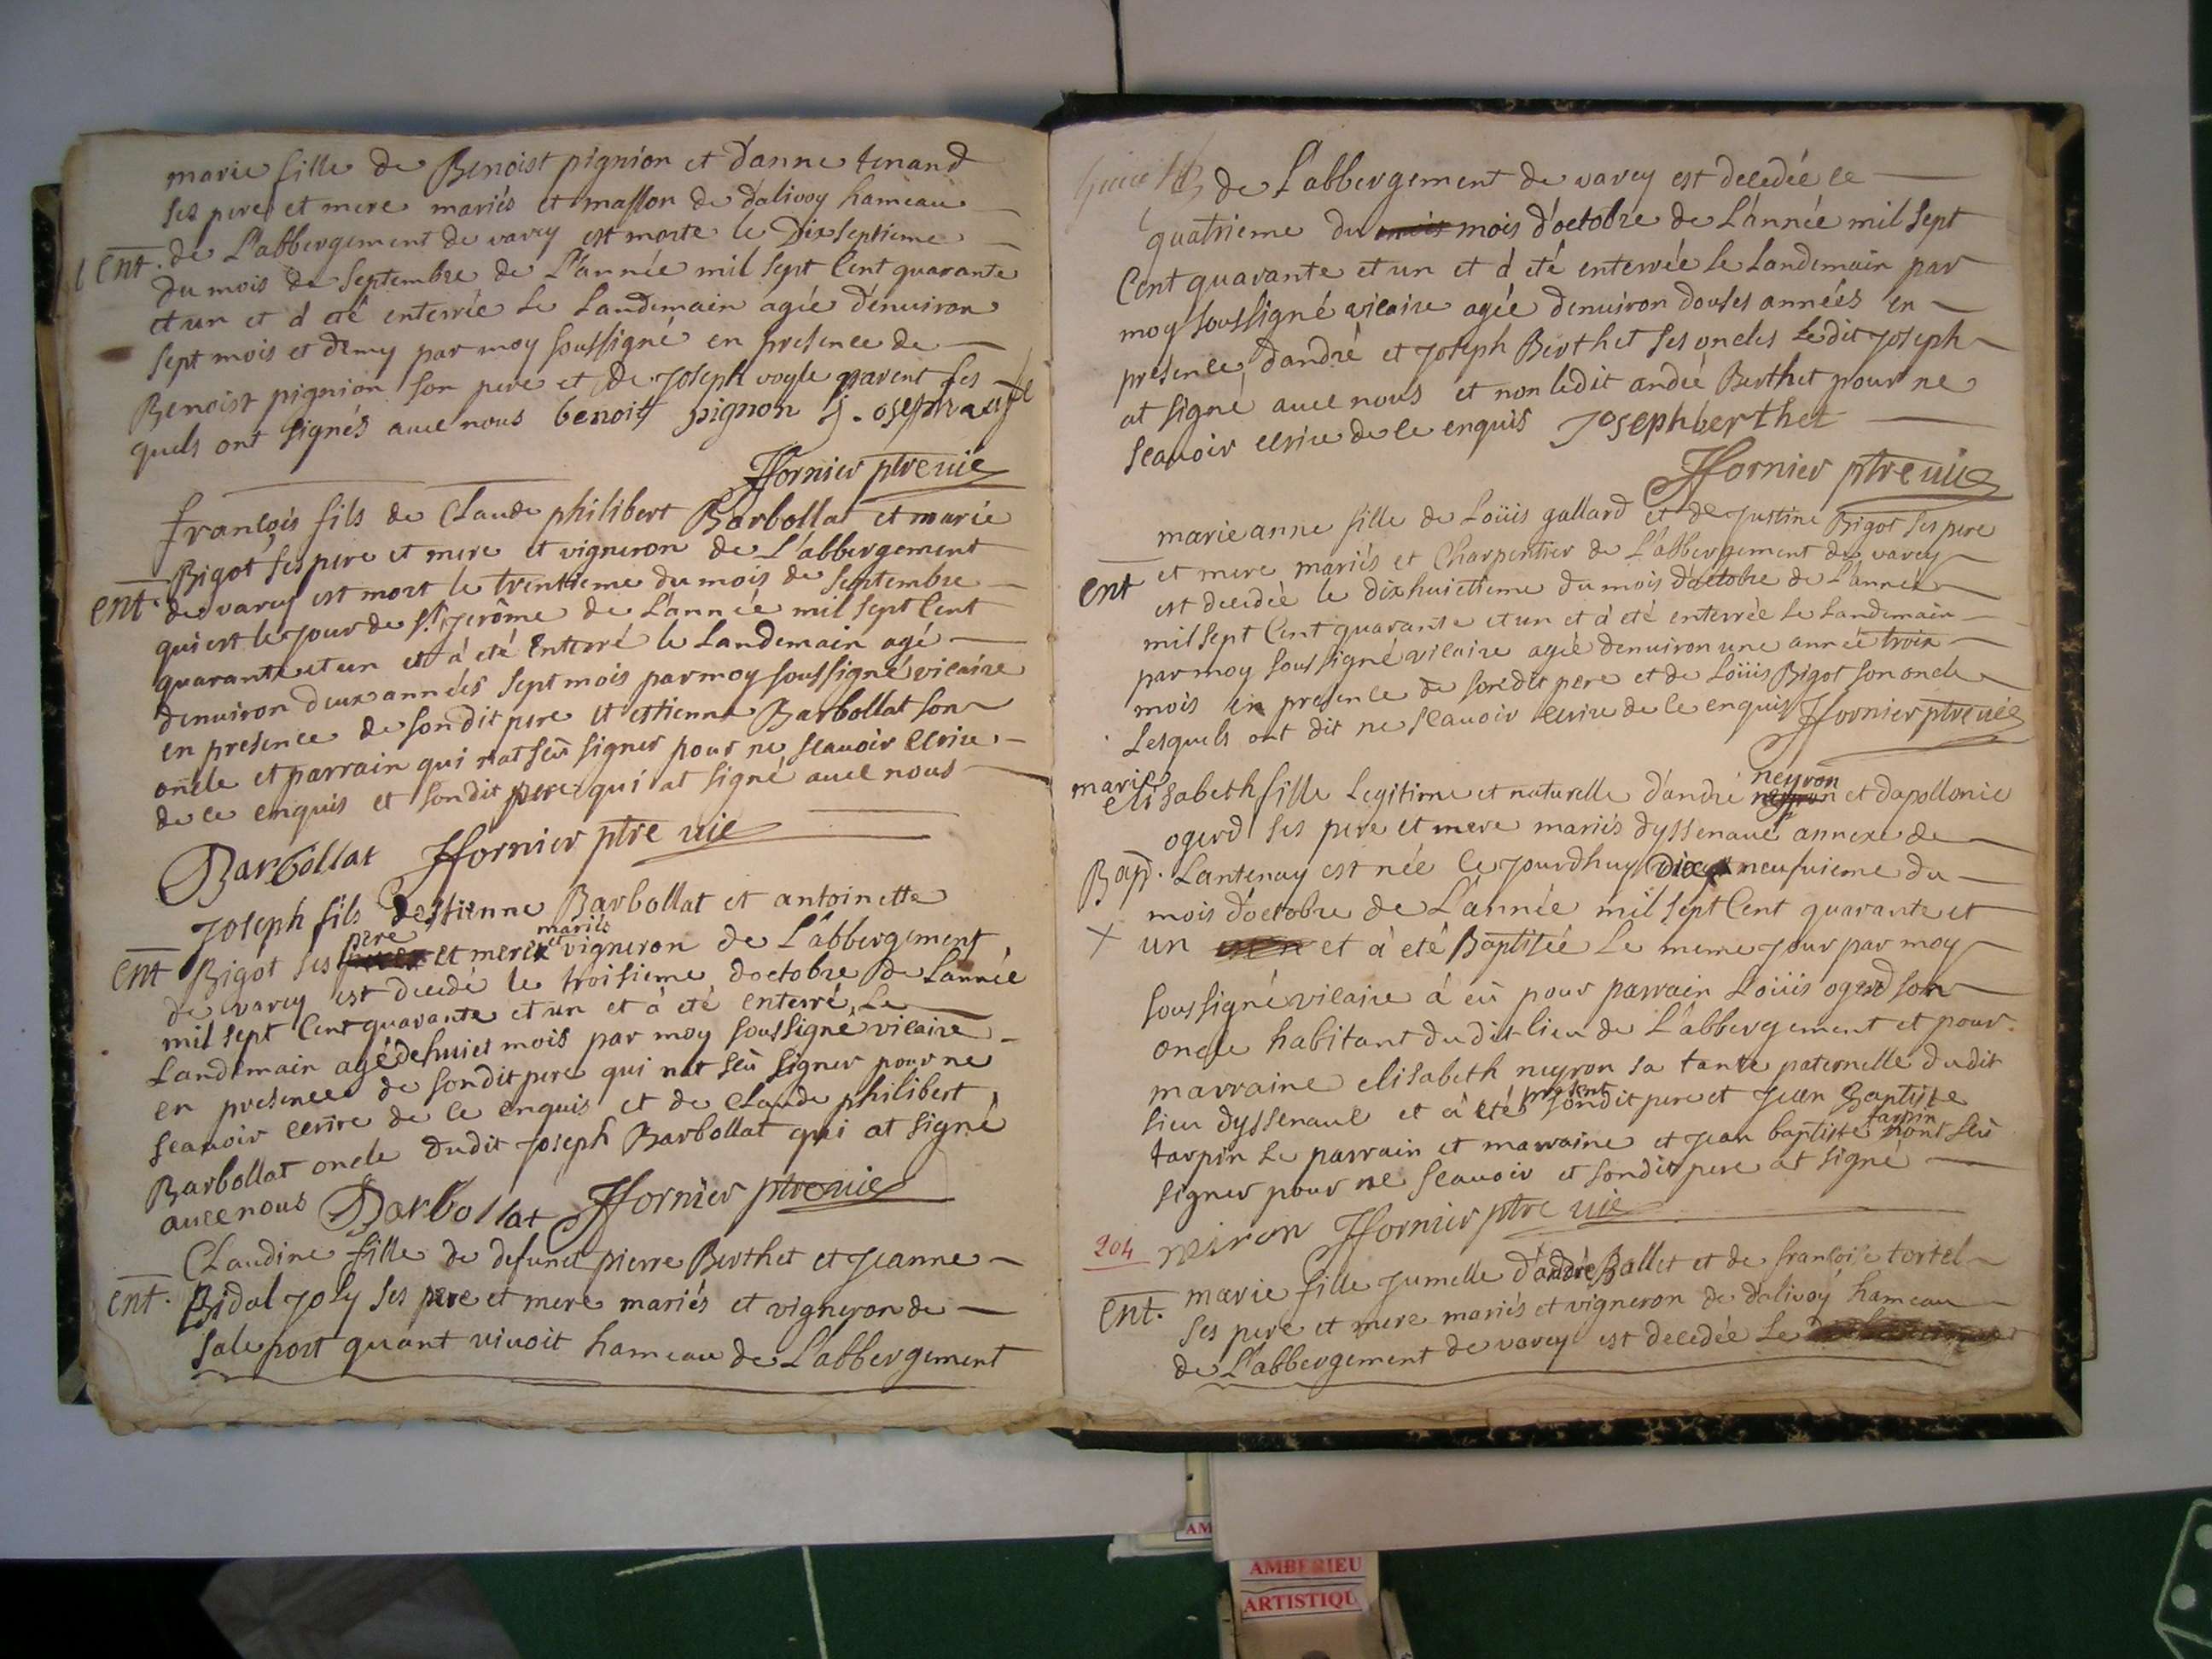 marie fille de Benoist pignion et d'anne tenand
ses pere et mere mariés et masson de dalivoy hameau
ent. de L'abbergement de varey est morte le Dixseptieme
du mois de septembre de L'année mil sept Cent quarante
et un et à eté enterrée le Landemain agée d'enuiron
sept mois et demy par moy soussigné en presence de
Benoist pignion son pere et de Joseph vogle parent les
quels ont signés auec nous benoist pignon
ffornier ptre uic
françois fils de Claude philibert Barbollat et marie
Bigot ses pere et mere et vigneron de L'abbergement
ent. de varey est mort le trentieme du mois de septembre
qui est le jour de st jerôme de L'année mil sept Cent
quarante et un et à eté enterré le Landemain agé
denuiron deux années sept mois par moy soussigné vicaire
en presence de son dit pere et estienne Barbollat son
oncle et parrain qui nat seû signer pour ne scauoir ecrire
de ce enquis et son dit pere qui at signé auec nous
Barbollat ffornier ptre uic
Joseph fils destienne Barbollat et antoinette
pere mariés
ent Bigot ses et mere et vigneron de L'abbergement
de varey est decedé le troisieme doctobre de Lannée
mil sept Cent quarante et un et à eté enterré Le
Landemain agé de huict mois par moy soussigné vicaire
en presence de son dit pere qui nat seû signer pour ne
scauoir ecrire de ce enquis et de Claude philibert
Barbollat oncle dudit Joseph Barbollat qui at signé
auec nous Barbollat ffornier ptre uic
Claudine fille de defunct pierre Berthet et Jeanne
ent. Bidal Joly ses pere et mere mariés et vigneron de
saleport quant viuoit hameau de L'abbergement
de L'abbergement de varey est decedée le
quatrieme du mois d'octobre de L'année mil sept
Cent quarante et un et à eté enterrée le Landemain par
moy soussigné vicaire agée denuiron douses années en
presence d'andré et Joseph Berthet ses oncles Ledit Joseph
at signé auec nous et non ledit andré Berthet pour ne
scauoir ecrire de ce enquis Josephberthet
ffornier ptre uic
marie anne fille de Loüis gallard et de Justine Bigot ses pere
et mere mariés et Charpentier de L'abbergement de varey
ent est decedée le dixhuictieme du mois d'octobre de L'année
mil sept Cent quarante et un et à eté enterrée le Landemain
par moy soussigné vicaire agée denuiron une année trois
mois en presence de son dit pere et de Loüis Bigot son oncle
Lesquels ont dit ne scauoir ecrire de ce enquis ffornier ptre uic
marie neyron
elisabeth fille Legitime et naturelle d'andré neyron et dapollonie
ogerd ses pere et mere mariés dyssenaue annexe de
Bap. Lantenay est née ce jourdhuy dix neufuieme du
mois d'octobre de L'année mil sept Cent quarante et
+ un et à eté Baptisée Le meme jour par moy
soussigné vicaire à eû pour parrain Loüis ogerd son
oncle habitant dudit lieu de L'abbergement et pour
marraine elisabeth neyron sa tante paternelle dudit
lieu dyssenaue et à eté present son dit pere et Jean Baptiste
tarpin Le parrain et marraine et Jean baptiste tarpin nont seû
signer pour ne scauoir et son dit pere at signé
neiron ffornier ptre uic
204
marie fille Jumelle d'andré Ballet et de françoise tortel
ent. ses pere et mere mariés et vigneron de dalivoy hameau
de L'abbergement de varey est decedée Le
AMBERIEU
ARTISTIQU